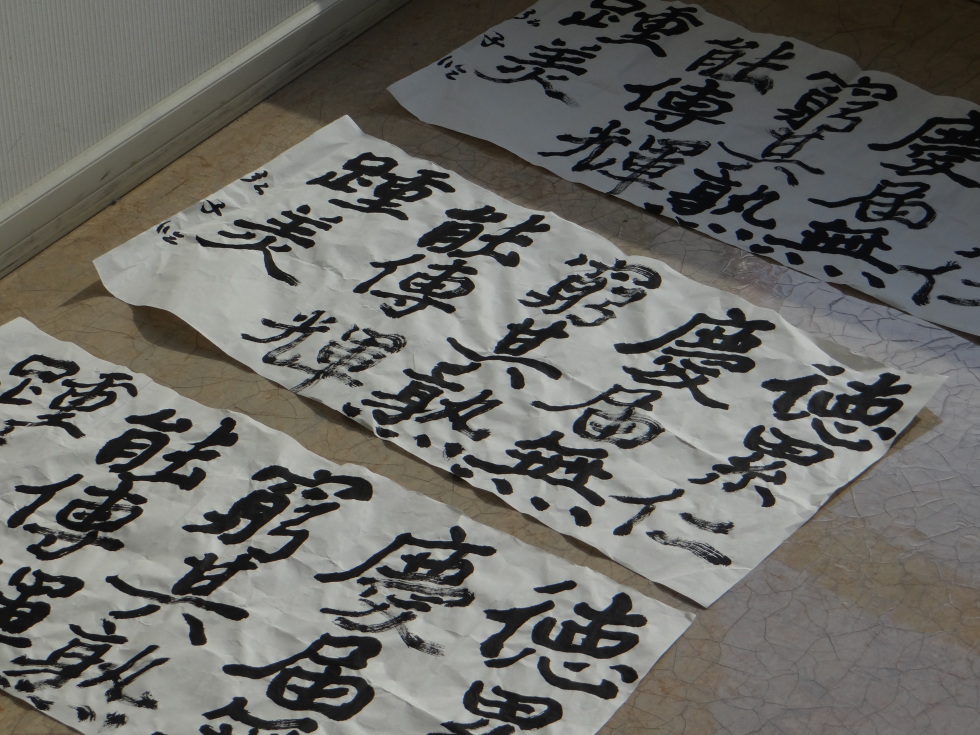 仁
慶届無
窮其熟
能傳輝
踵美
弘子臨
徳累仁
慶届無
窮其熟
能傳輝
踵美
弘子臨
徳累
慶届
窮其熟
能傳
踵